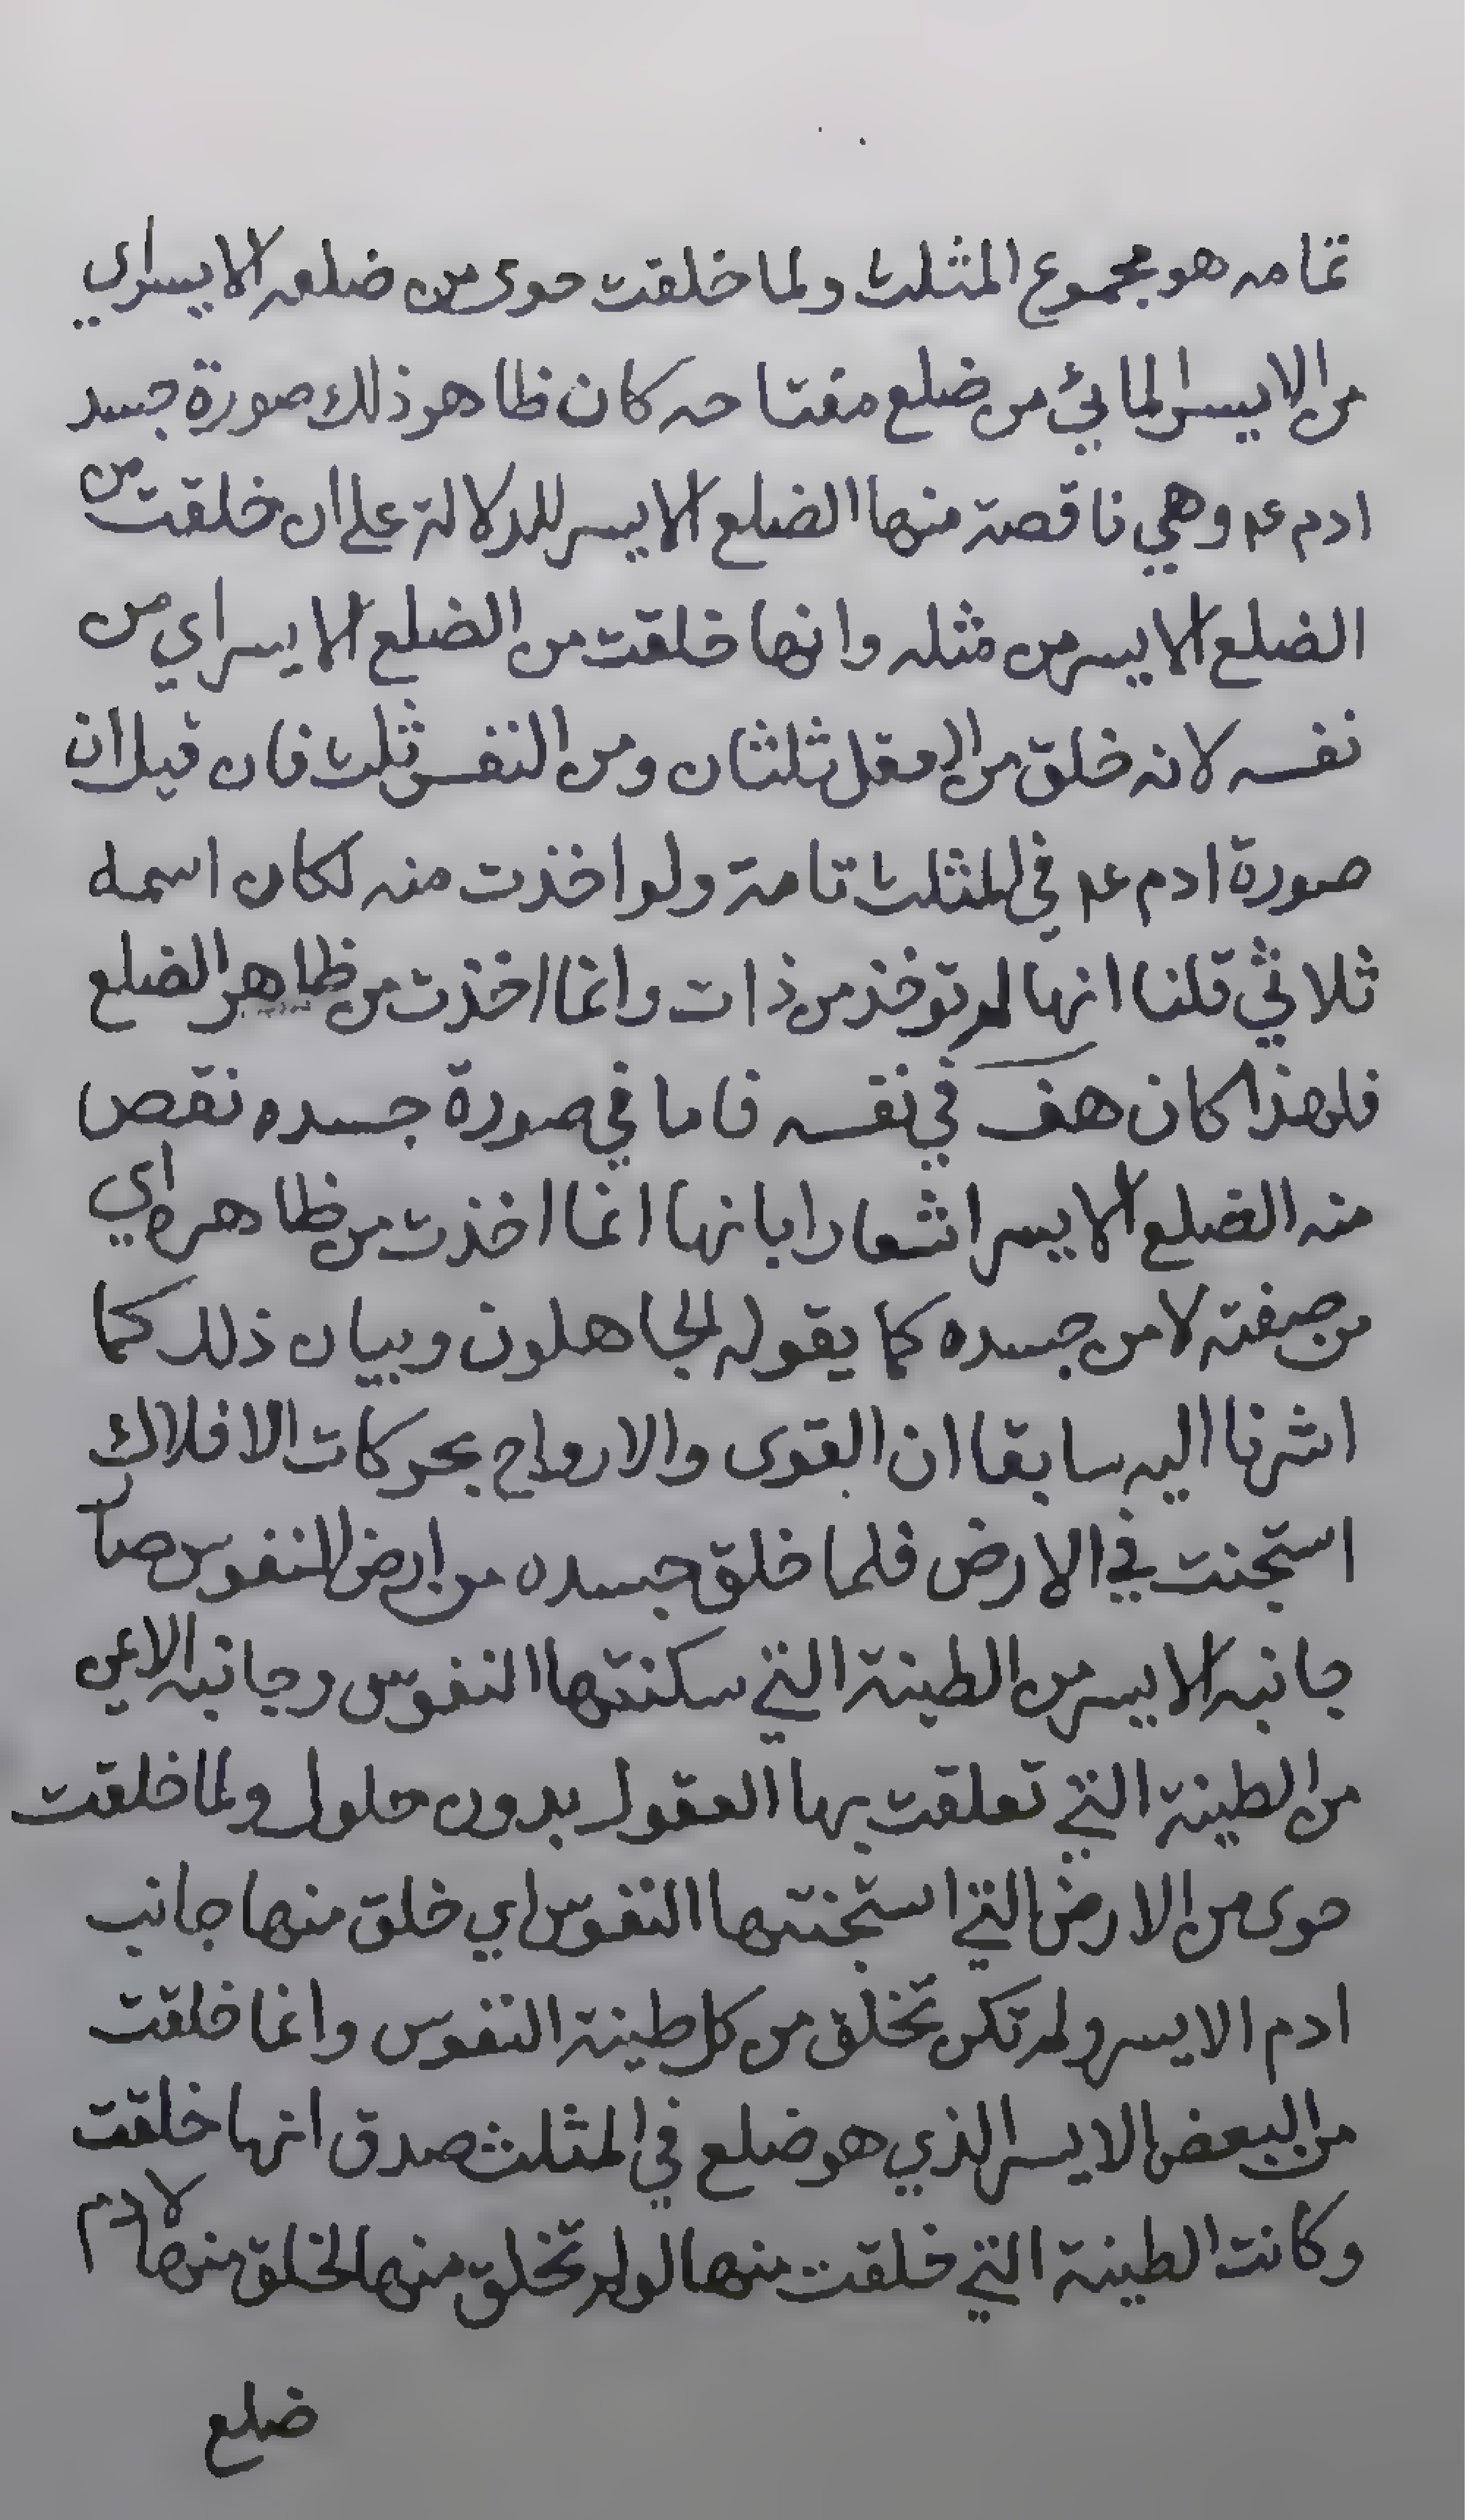 تمامه هو مجموع المثلث ولما خلقت حوى من ضلعه الايسر اي
من الايسر المائي من ضلع مفتاحه كان ظاهر ذلك صورة جسد
ادم عم وهي ناقصة منها الضلع الايسر للدلالة على ان خلقت من
الضلع الايسر من مثله وانها خلقت من الضلع الايسر اي من
نفسه لانه خلق من العقل ثلثان ومن النفس ثلث فان قيل ان
صورة ادم عم في المثلث تامة ولو اخذت منه لكان اسمه
ثلاثي قلنا انها لم توخذ من ذات وانما اخذت من ظاهر الضلع
فلهذا كان هف في نفسه فاما في صورة جسده نقص
منه الضلع الايسر اشعارا بانها انما اخذت من ظاهره اي
من صفته لا من جسده كما يقوله الجاهلون وبيان ذلك كما
اشرنا اليه سابقا ان القوى والارواح بحركات الافلاك
استجنت في الارض فلما خلق جسده من ارض النفوس صار
جانبه الايسر من الطينة التي سكنتها النفوس وجانبه الايمن
من الطينة التي تعلقت بها العقول بدون حلول ولما خلقت
حوى من الارض التي استجنتها النفوس اي خلق منها جانب
ادم الايسر ولم تكن تخلق من كل طينة النفوس وانما خلقت
من البعض الايسر الذي هو ضلع في المثلث صدق انها خلقت
وكانت الطينة التي خلقت منها لو لم تخلق منها لخلق منها لادم
ضلع